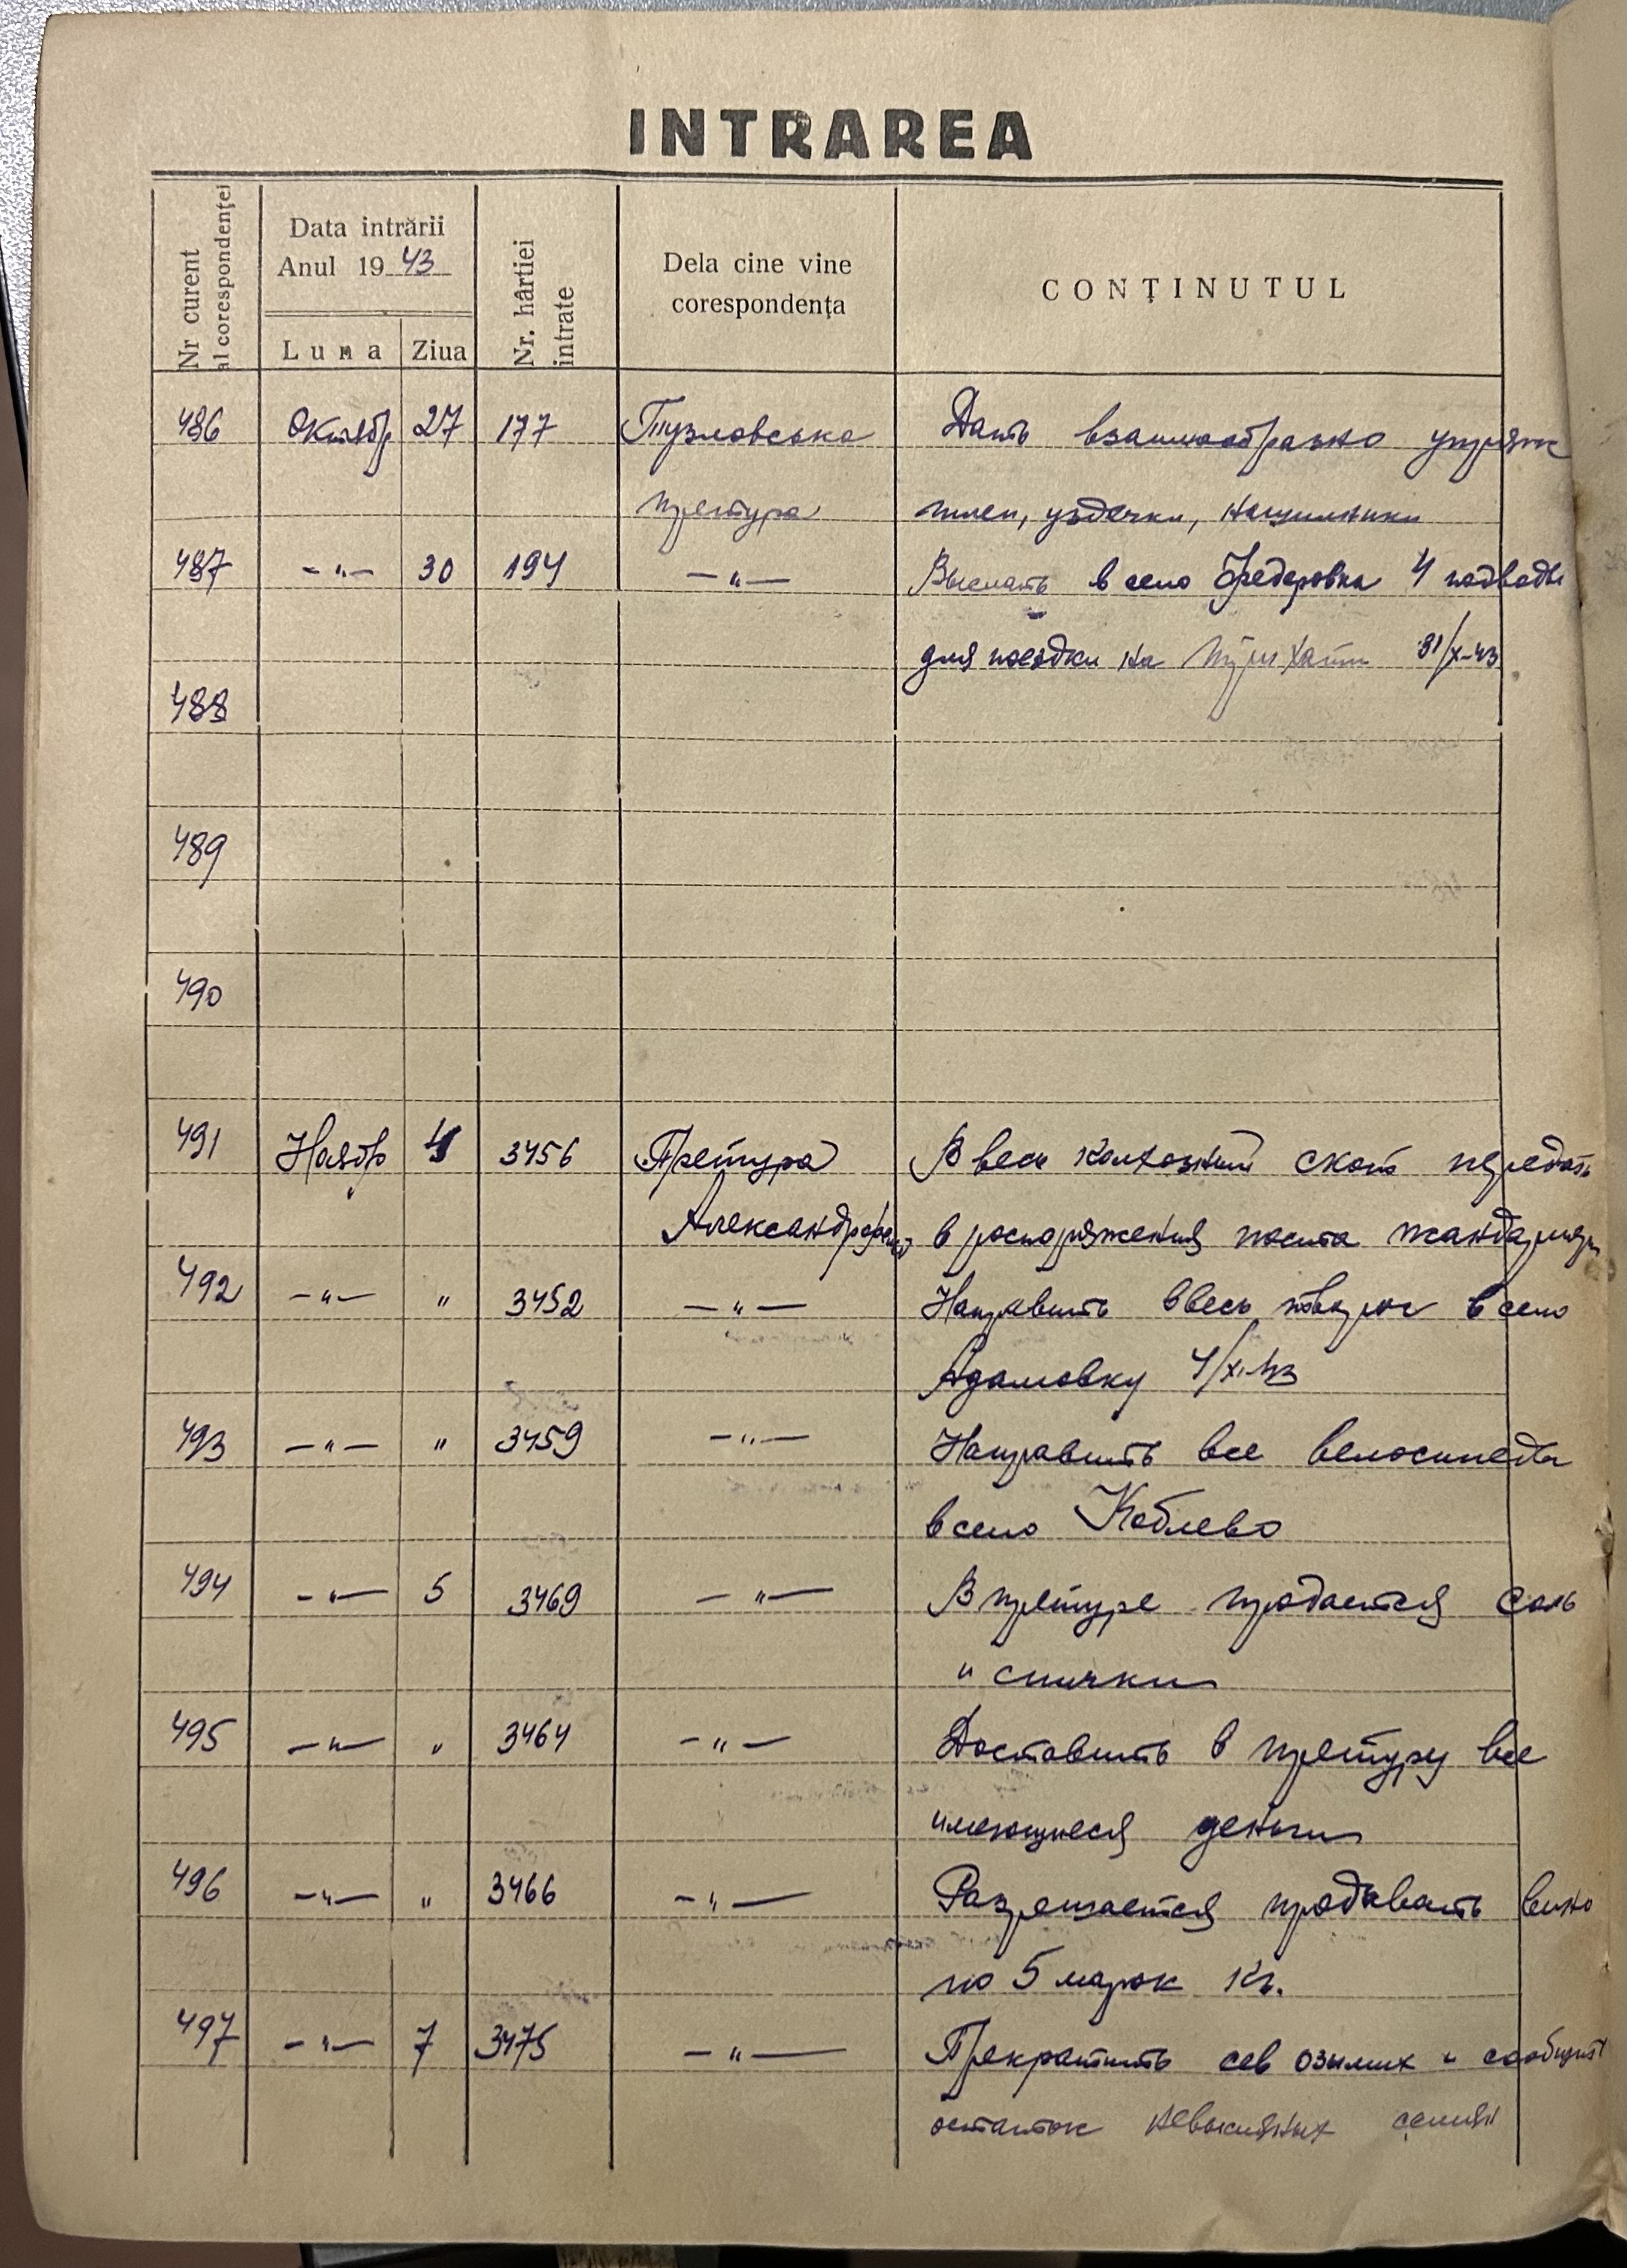 INTRAREA
Nr curent al corespondenței
Data intrării
Anul 19 43
Luna Ziua
Nr. hârtiei intrate
Dela cine vine
corespondența
CONȚINUTUL
486 Октябр 27 177 Тузловська Дать взаимообразно упряж
претура шлеи, уздечки, нашильники
487 -"- 30 194 -"- Выслать в село Федоровка 4 подводы
для поездки на 31/X-43
488
489
490
491 Наябр 4 3456 Претура В весь колхозный скот передать
в роспоряжения поста жандармер
492 -"- " 3452 -"- Направить ввесь в село
Адамовку 4/XI-43
493 -"- " 3459 -"- Направить все велосипеды
в село Коблево
494 -"- 5 3469 -"- В претуре продается соль
и спички
495 -"- " 3464 -"- Доставить в претуру все
имеющиеся деньги
496 -"- " 3466 -"- Разрешается продавать вино
по 5 марок кг.
497 -"- 7 3475 -"- Прекратить сев озымих и сообщит
остаток невысияных семян